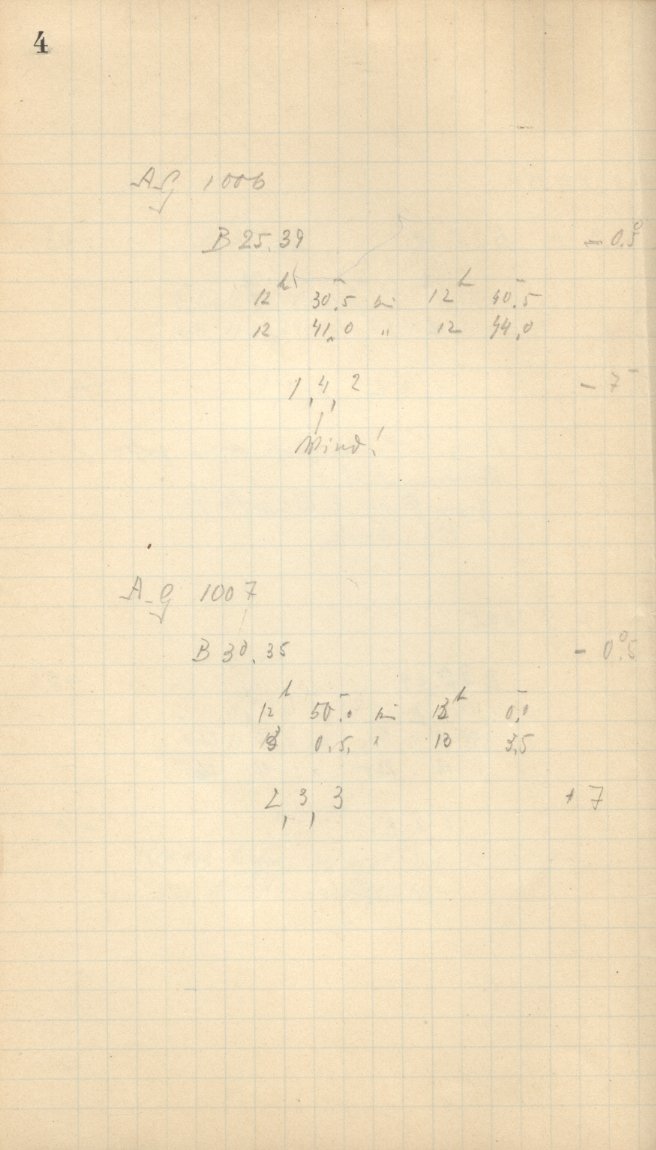 4
AG 1006
B 25.39 - 0.5°
12h 30.5m bis 12h 40.5m
12 41.0 " 12 44.0
1, 4, 2 - 7
Wind!
AG 1007
B 30.35 - 0°.5
12h 50m.0 bis 13h 0m.0
13 0.5 " 13 3.5
2, 3, 3 + 7